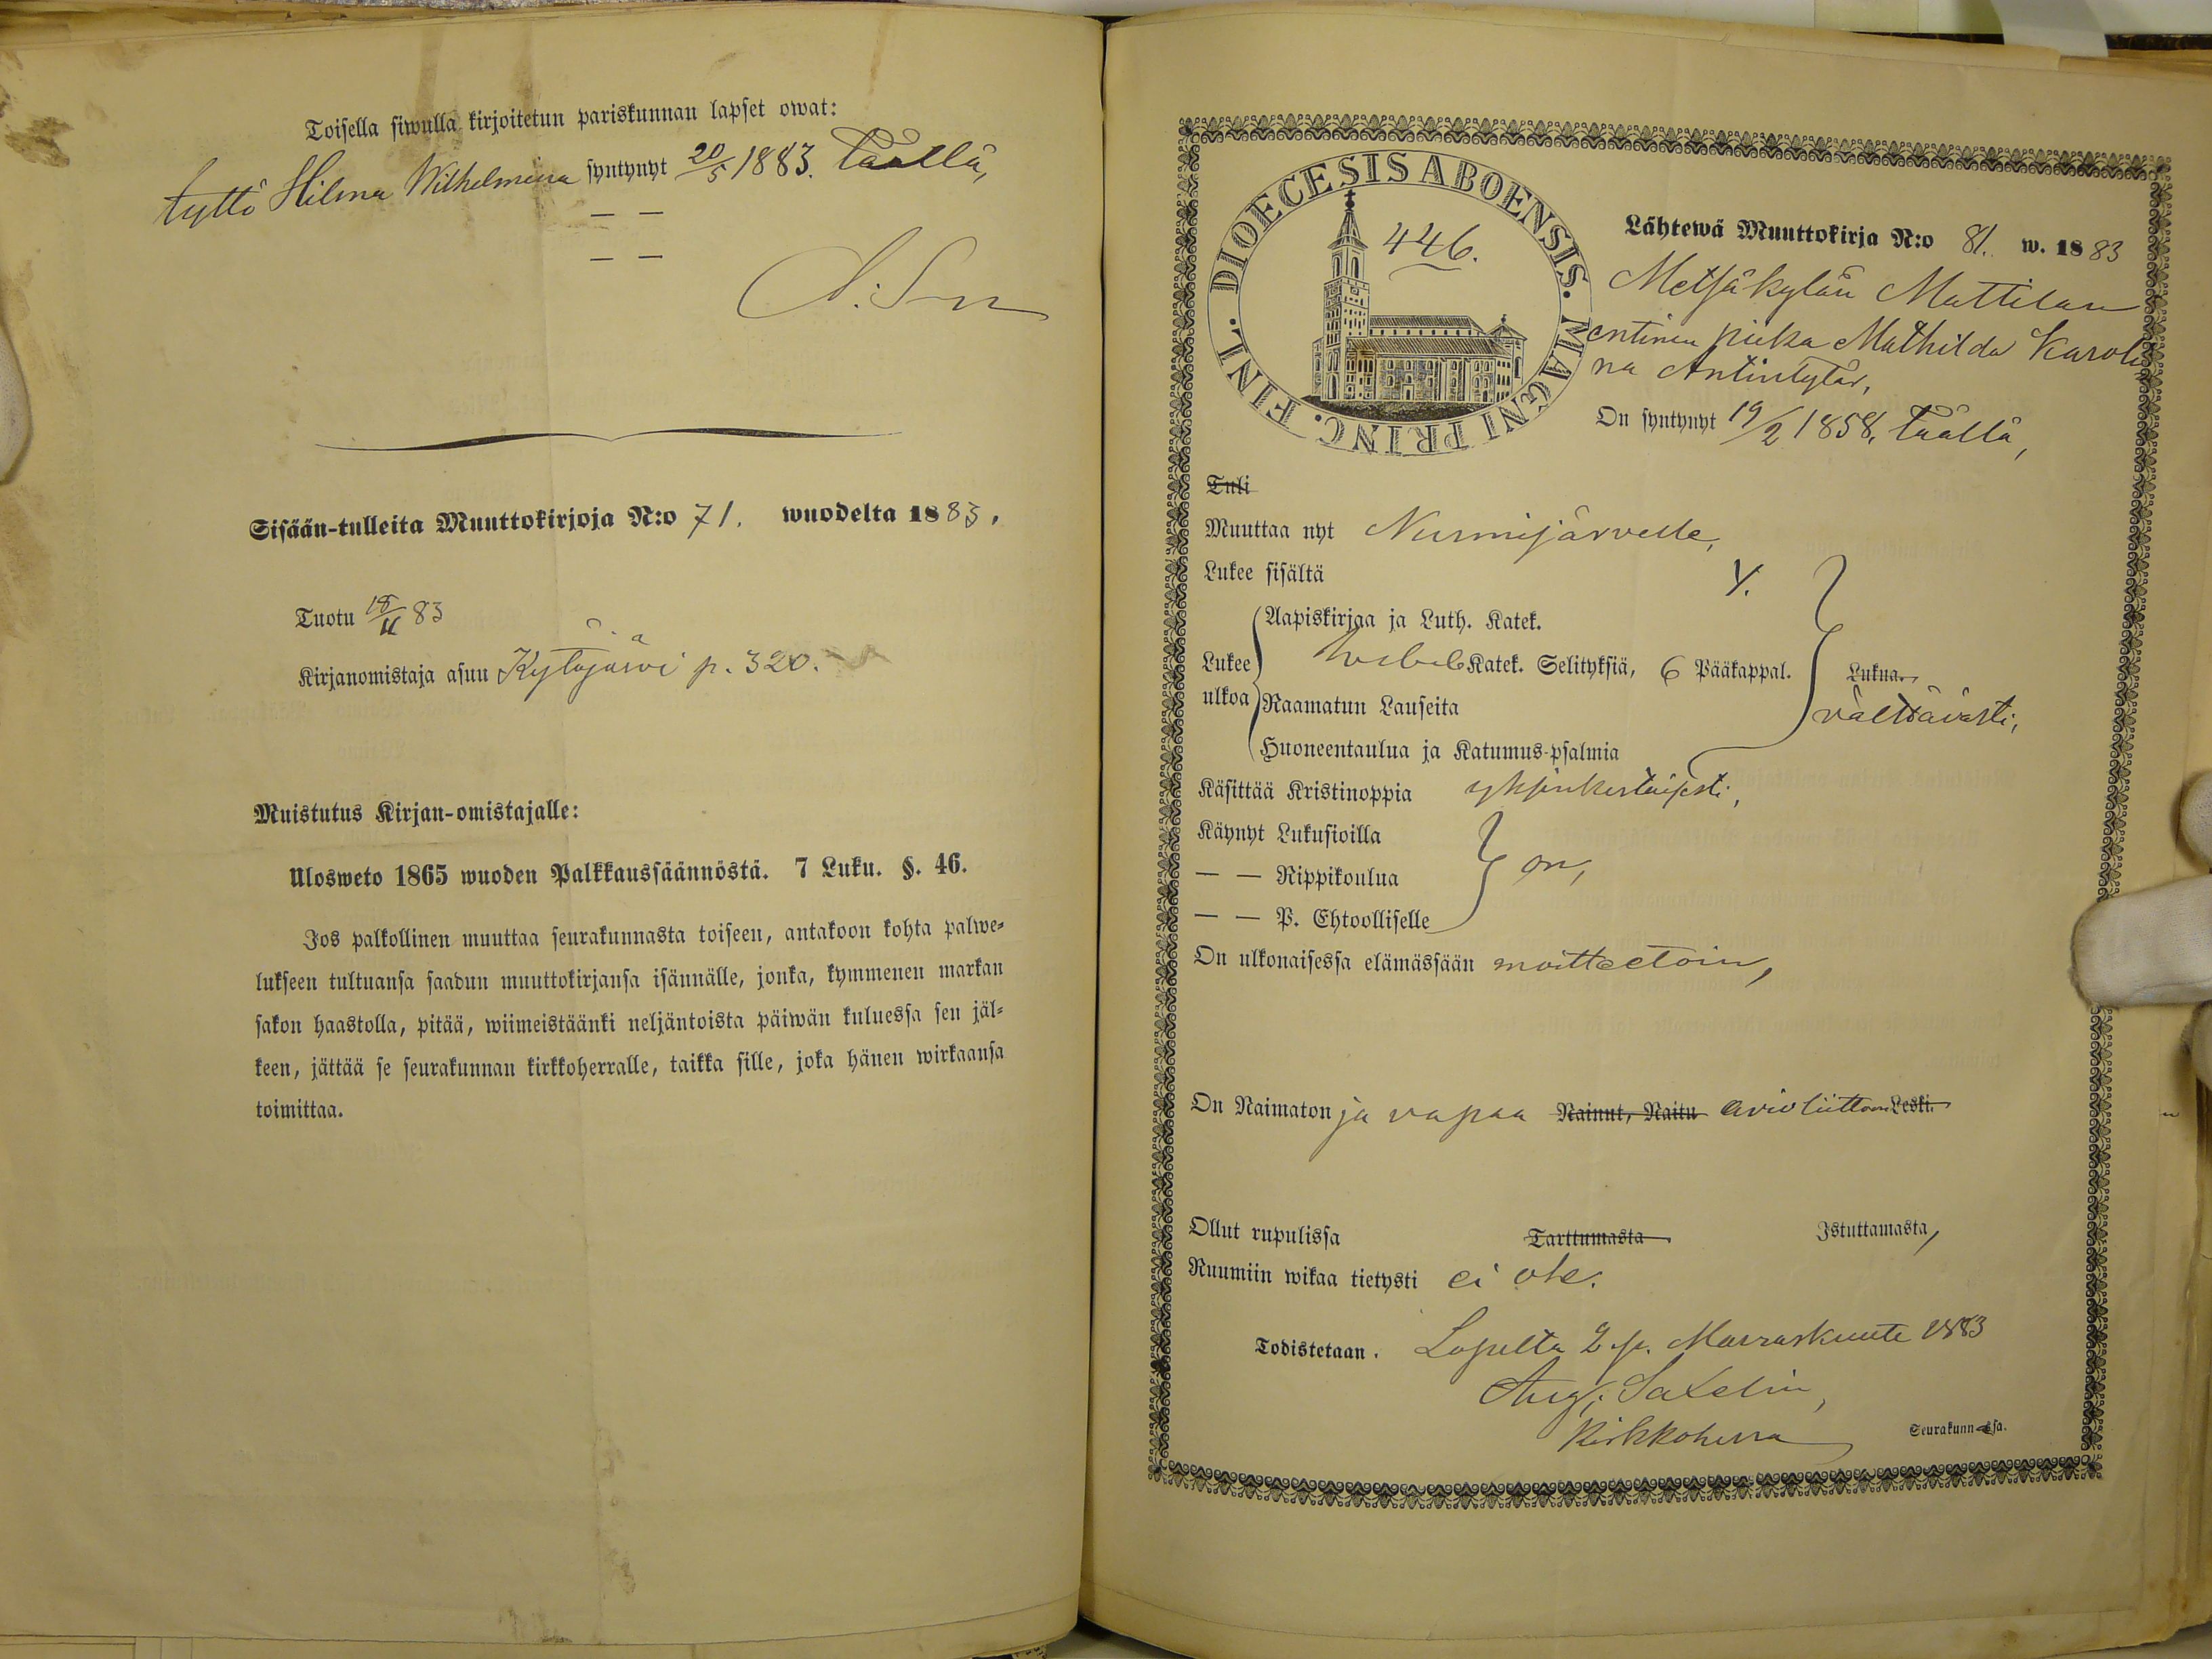 Toisella siwulla kirjoitetun pariskunnan lapset owat:
tyttö Hilma Wilhelmina syntynyt 20/5 1883. täällä,
— —
— —
Sisään-tulleita Muuttokirjoja N:o 71. wuodelta 1883.
Tuotu 18/11 83
Kirjanomistaja asuu Kytäjärvi p. 320.
Muistutus Kirjan-omistajalle:
Ulosweto 1865 wuoden Palkkaussäännöstä. 7 Luku. §. 46.
Jos palkollinen muuttaa seurakunnasta toiseen, antakoon kohta palwe-
lukseen tultuansa saadun muuttokirjansa isännälle, jonka, kymmenen markan
sakon haastolla, pitää, wiimeistäänki neljäntoista päiwän kuluessa sen jäl-
keen, jättää se seurakunnan kirkkoherralle, taikka sille, joka hänen wirkaansa
toimittaa.
DIOECESIS ABOENSIS. MAGNI PRINC. FINL.
446.
Lähtewä Muuttokirja N:o 81. w. 1883
Metsäkylän Mattilan
entinen piika Mathilda Karoli
na Antintytär,
On syntynyt 19/2 1858, täällä,
Tuli
Muuttaa nyt Nurmijärvelle,
Lukee sisältä y.
Aapiskirjaa ja Luth. Katek.
Lukee Katek. Selityksiä, 6 Pääkappal. Lukua.
ulkoa Raamatun Lauseita välttävästi,
Huoneentaulua ja Katumus-psalmia
Käsittää Kristinoppia yksinkertaisesti,
Käynyt Lukusioilla
— — Rippikoulua on,
— — P. Ehtoolliselle
On ulkonaisessa elämässään moitteetoin,
On Naimaton ja vapaa Nainut, Naitu avioliittoon Leski.
Ollut rupulissa Tarttumasta Istuttamasta,
Ruumiin wikaa tietysti ei ole.
Todistetaan. Lopelta 2 p. Marraskuuta 1883
Aug. Saxelin,
Kirkkoherra Seurakunnassa.